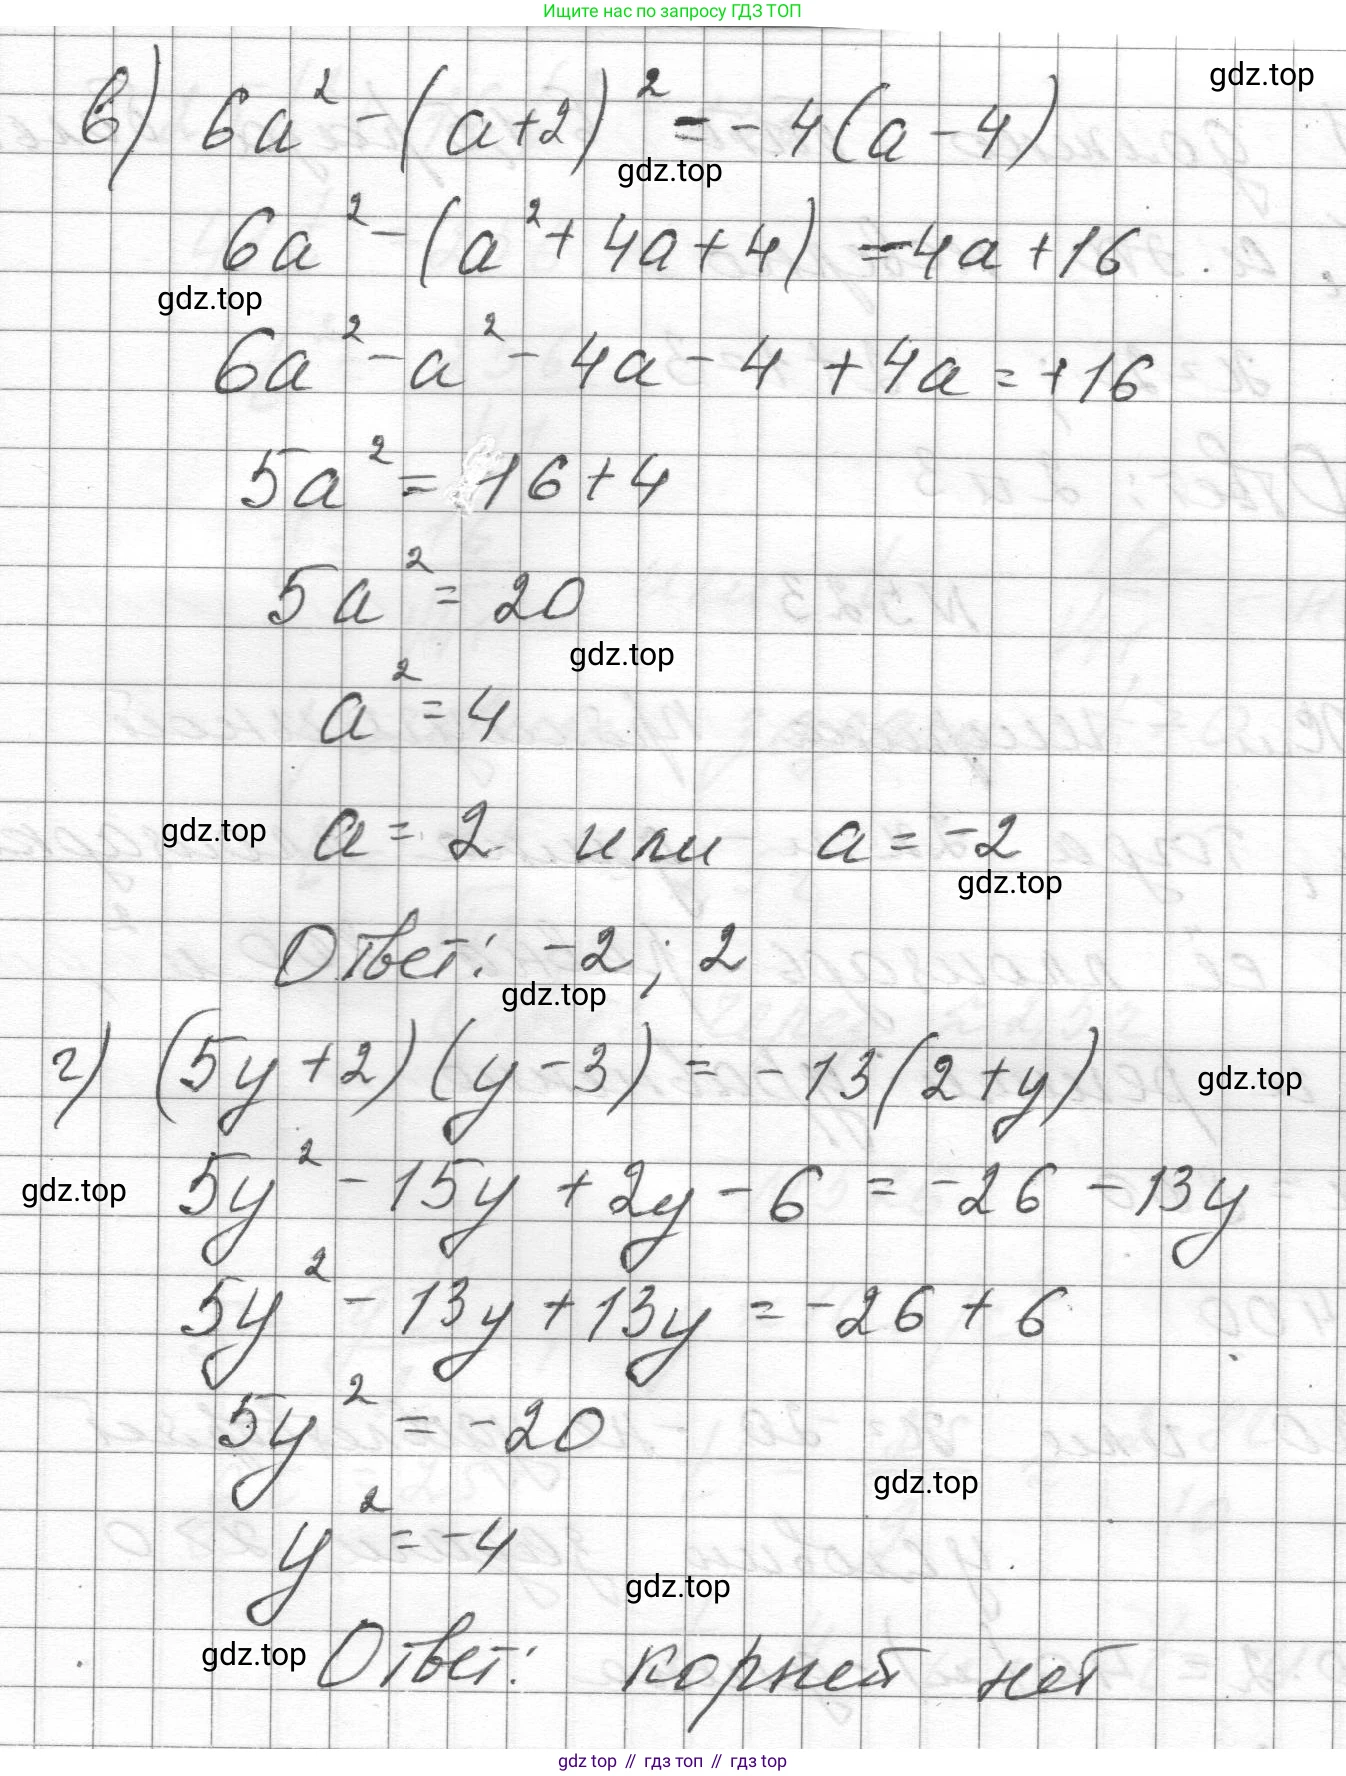 Ищите нас по запросу ГДЗ ТОП
gdz.top
в) 6a² - (a+2)² = -4(a-4)
gdz.top
6a² - (a² + 4a + 4) = -4a + 16
gdz.top
6a² - a² - 4a - 4 + 4a = +16
5a² = 16 + 4
5a² = 20
gdz.top
a² = 4
gdz.top a = 2 или a = -2
gdz.top
Ответ: -2; 2
gdz.top
г) (5y+2)(y-3) = -13(2+y)
gdz.top
gdz.top 5y² - 15y + 2y - 6 = -26 - 13y
5y² - 13y + 13y = -26 + 6
5y² = -20
gdz.top
y² = -4
gdz.top
gdz.top Ответ: корней нет
gdz.top // гдз топ // гдз top